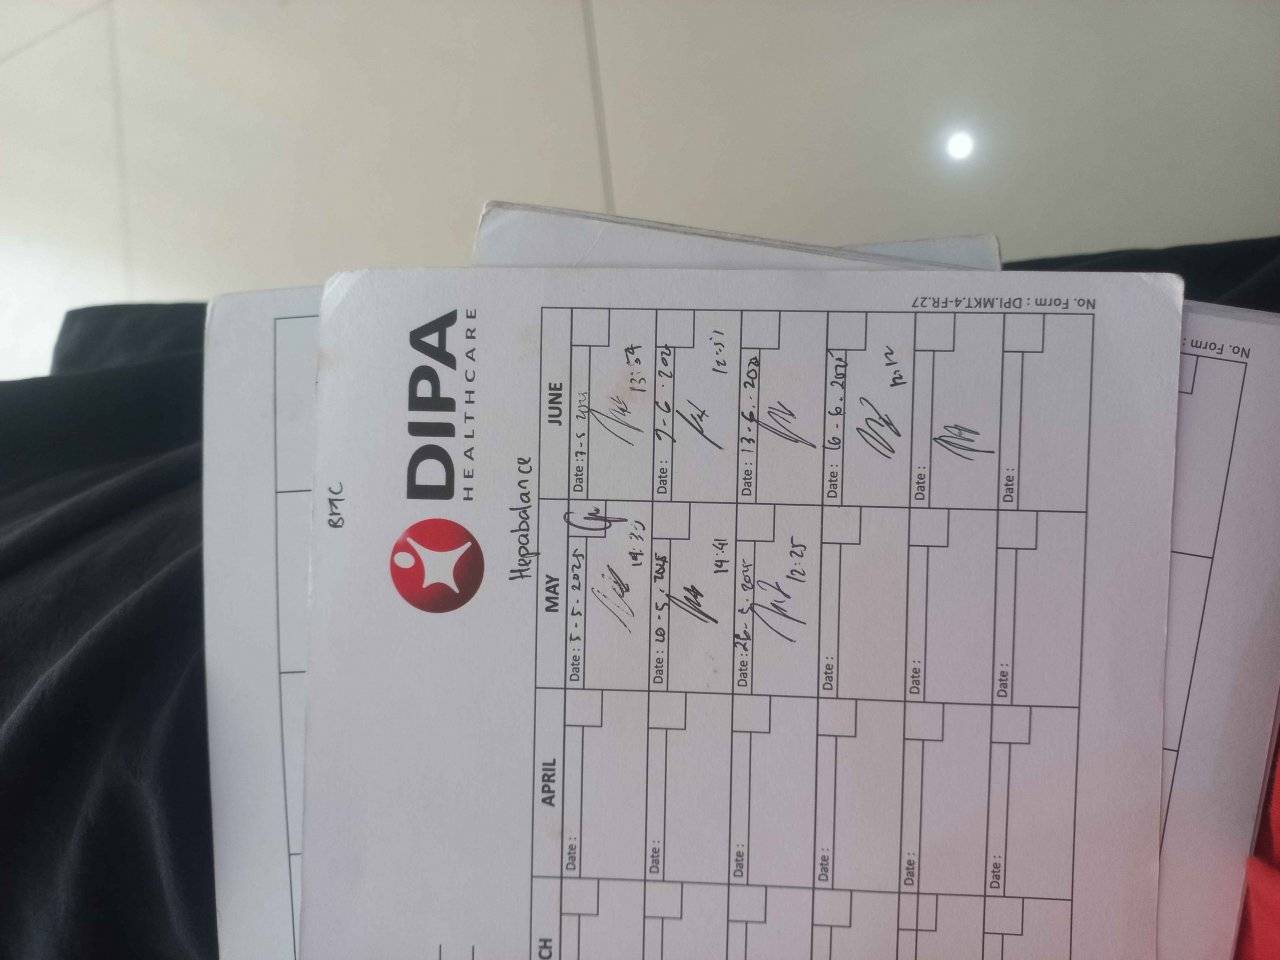 BMC
DIPA
HEALTHCARE
Hepabalance
CH
APRIL
MAY
JUNE
Date :
Date : 5-5-2025
Date : 7-5
14:35
13:54
Date :
Date : 20-5.2025
Date : 7-6.202
14:41
12:51
Date :
Date : 26-5.2025
Date : 13.6.202
12:25
Date :
Date :
Date : 16-6.2025
12:12
Date :
Date :
Date :
Date :
Date :
Date :
No. Form : DPI.MKT.4-FR.27
No. Form :